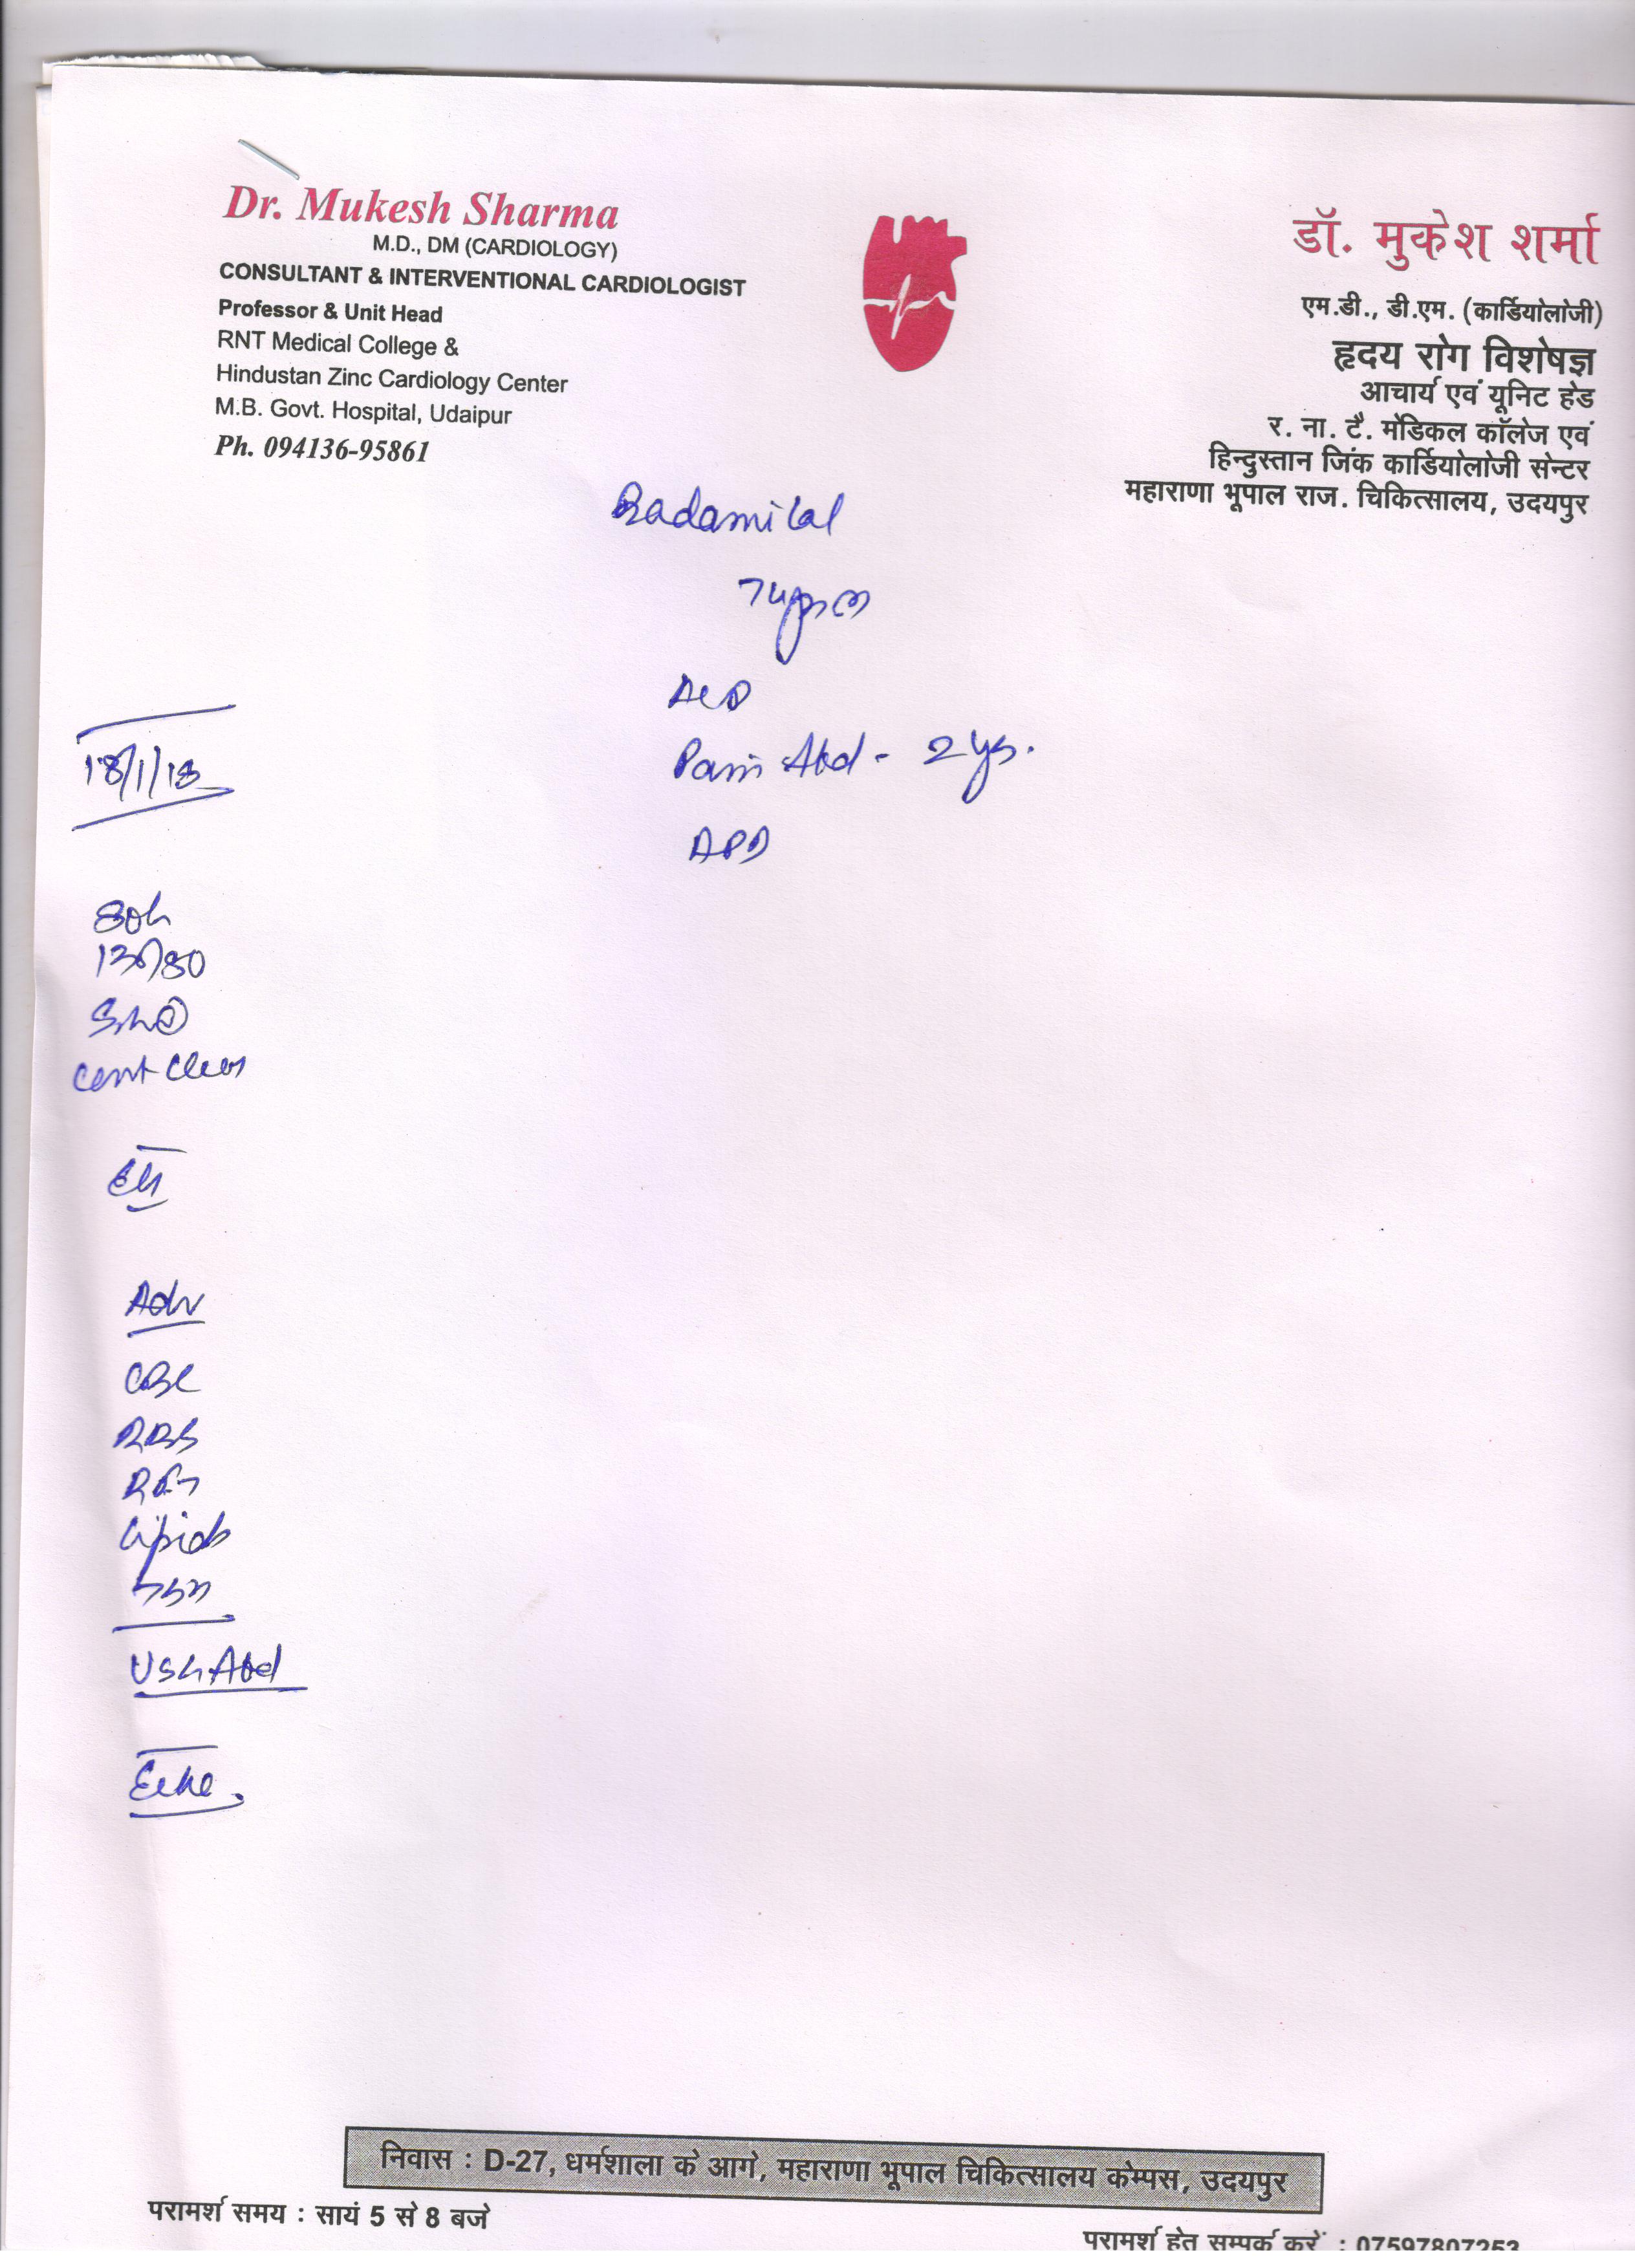 Dr. Mukesh Sharma
M.D., DM (CARDIOLOGY)
CONSULTANT & INTERVENTIONAL CARDIOLOGIST
Professor & Unit Head
RNT Medical College &
Hindustan Zinc Cardiology Center
M.B. Govt. Hospital, Udaipur
Ph. 094136-95861
डॉ. मुकेश शर्मा
एम.डी., डी.एम. (कार्डियोलोजी)
हृदय रोग विशेषज्ञ
आचार्य एवं यूनिट हेड
र. ना. टै. मेडिकल कॉलेज एवं
हिन्दुस्तान जिंक कार्डियोलोजी सेन्टर
महाराणा भूपाल राज. चिकित्सालय, उदयपुर
Badamilal
Pain Abd - 2 ys.
APD
18/1/18
130/80
Adv
CBC
RBS
RFT
Lipids
USG Abd
Echo.
निवास : D-27, धर्मशाला के आगे, महाराणा भूपाल चिकित्सालय केम्पस, उदयपुर
परामर्श समय : सायं 5 से 8 बजे
परामर्श हेतु सम्पर्क करें : 07597807253